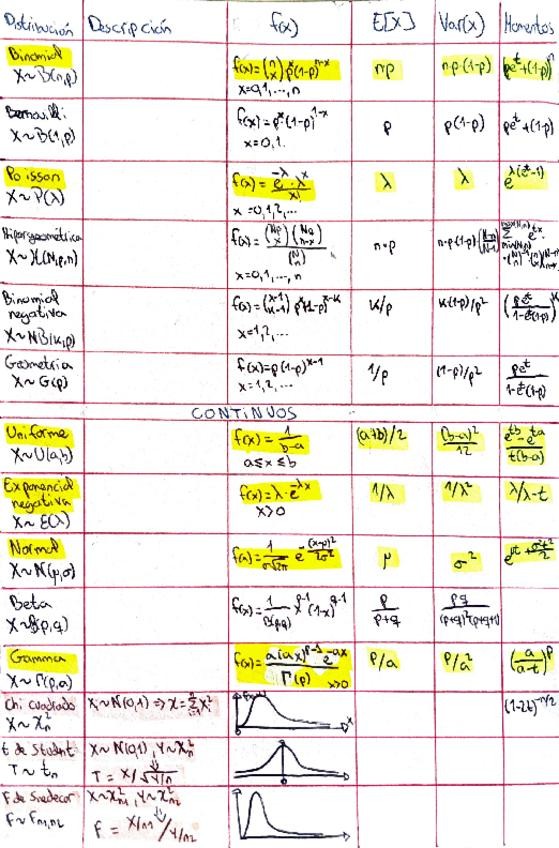 Distribución Descripción f(x) E[X] Var(x) Momentos
Binomial
X~B(n,p) f(x)=(n x) p^x (1-p)^{n-x} n·p n·p·(1-p) (pe^t+(1-p))^n
x=0,1,...,n
Bernoulli
X~B(1,p) f(x)=p^x(1-p)^{1-x} p p(1-p) pe^t+(1-p)
x=0,1.
Poisson
X~P(λ) f(x)=e^{-λ}·λ^x/x! λ λ e^{λ(e^t-1)}
x=0,1,2,...
Hipergeométrica
X~H(N,p,n) f(x)=(Np x)(Nq n-x)/(N n) n·p n·p·(1-p)(N-n/N-1)
x=0,1,...,n
Binomial
negativa
X~NB(k,p) f(x)=(x-1 k-1) p^k(1-p)^{x-k} k/p k·(1-p)/p² (pe^t/1-e^t(1-p))^k
x=1,2,...
Geometría
X~G(p) f(x)=p(1-p)^{x-1} 1/p (1-p)/p² pe^t/1-e^t(1-p)
x=1,2,...
CONTINUOS
Uniforme
X~U(a,b) f(x)=1/b-a (a+b)/2 (b-a)²/12 e^{tb}-e^{ta}/t(b-a)
a≤x≤b
Exponencial
negativa
X~E(λ) f(x)=λ·e^{-λx} 1/λ 1/λ² λ/λ-t
x>0
Normal
X~N(μ,σ) f(x)=1/σ√2π e^{-(x-μ)²/2σ²} μ σ² e^{μt+σ²t²/2}
Beta
X~β(p,q) f(x)=1/β(p,q) x^{p-1}(1-x)^{q-1} p/p+q pq/(p+q)²(p+q+1)
Gamma
X~Γ(p,a) f(x)=a(ax)^{p-1}e^{-ax}/Γ(p) x>0 p/a p/a² (a/a-t)^p
Chi cuadrado X_i~N(0,1)⇒X=Σx_i² x (1-2t)^{-n/2}
X~χ²_n
t de Student X~N(0,1), Y~χ²_n
T~t_n T=X/√Y/n 0
F de Snedecor X~χ²_{n1}, Y~χ²_{n2}
F~F_{n1,n2} F=X/n1/Y/n2